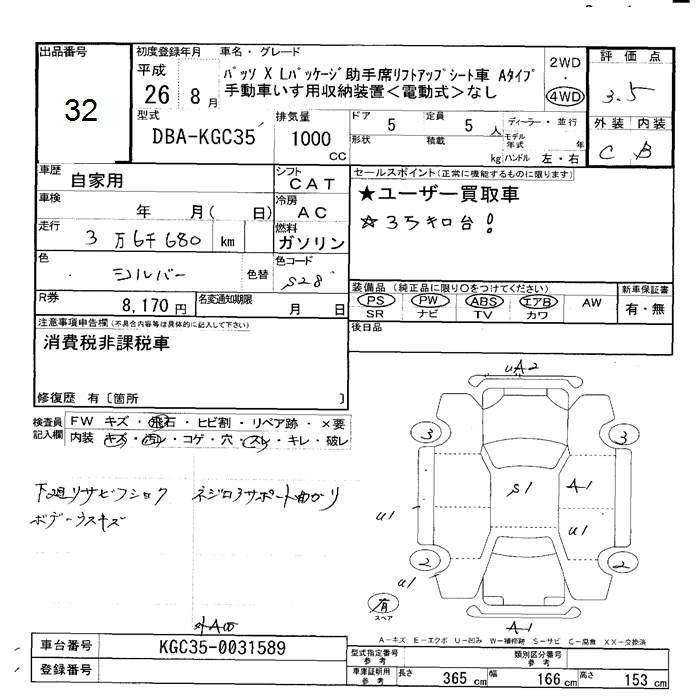 出品番号
32
初度登録年月
平成
26 8月
車名・グレード
パッソ X Lパッケージ助手席リフトアップシート車 Aタイプ
手動車いす用収納装置<電動式>なし
2WD
・
4WD
評価点
3.5
外装 内装
C B
型式
DBA-KGC35
排気量
1000
CC
ドア
5
定員
5 人
形状
積載
kg
ディーラー・並行
モデル年式 年
ハンドル 左・右
車歴
自家用
シフト
CAT
車検
年 月( 日)
冷房
AC
走行
3万6千680 km
燃料
ガソリン
色
シルバー
色替
色コード
S28
R券
8,170円
名変通知期限
月 日
セールスポイント(正常に機能するものに限ります)
★ユーザー買取車
☆35キロ台!
装備品(純正品に限り〇をつけてください)
PS PW ABS エアB AW
SR ナビ TV カワ
新車保証書
有・無
後日品
注意事項申告欄(不具合内容等は具体的に記入して下さい)
消費税非課税車
修復歴 有〔箇所 〕
検査員
記入欄
FW キズ・飛石・ヒビ割・リペア跡・×要
内装 キズ・汚レ・コゲ・穴・スレ・キレ・破レ
下廻リサビフショク
ボデーウスキズ
外A00
uA2
3
3
S1
A1
u1
u1
2
2
u1
A1
有
スペア
A-キズ E-エクボ U-凹み W-補修跡 S-サビ C-腐食 XX-交換済
車台番号
KGC35-0031589
登録番号
型式指定番号
参考
類別区分番号
参考
車庫証明用
参考
長さ 365 cm 幅 166 cm 高さ 153 cm